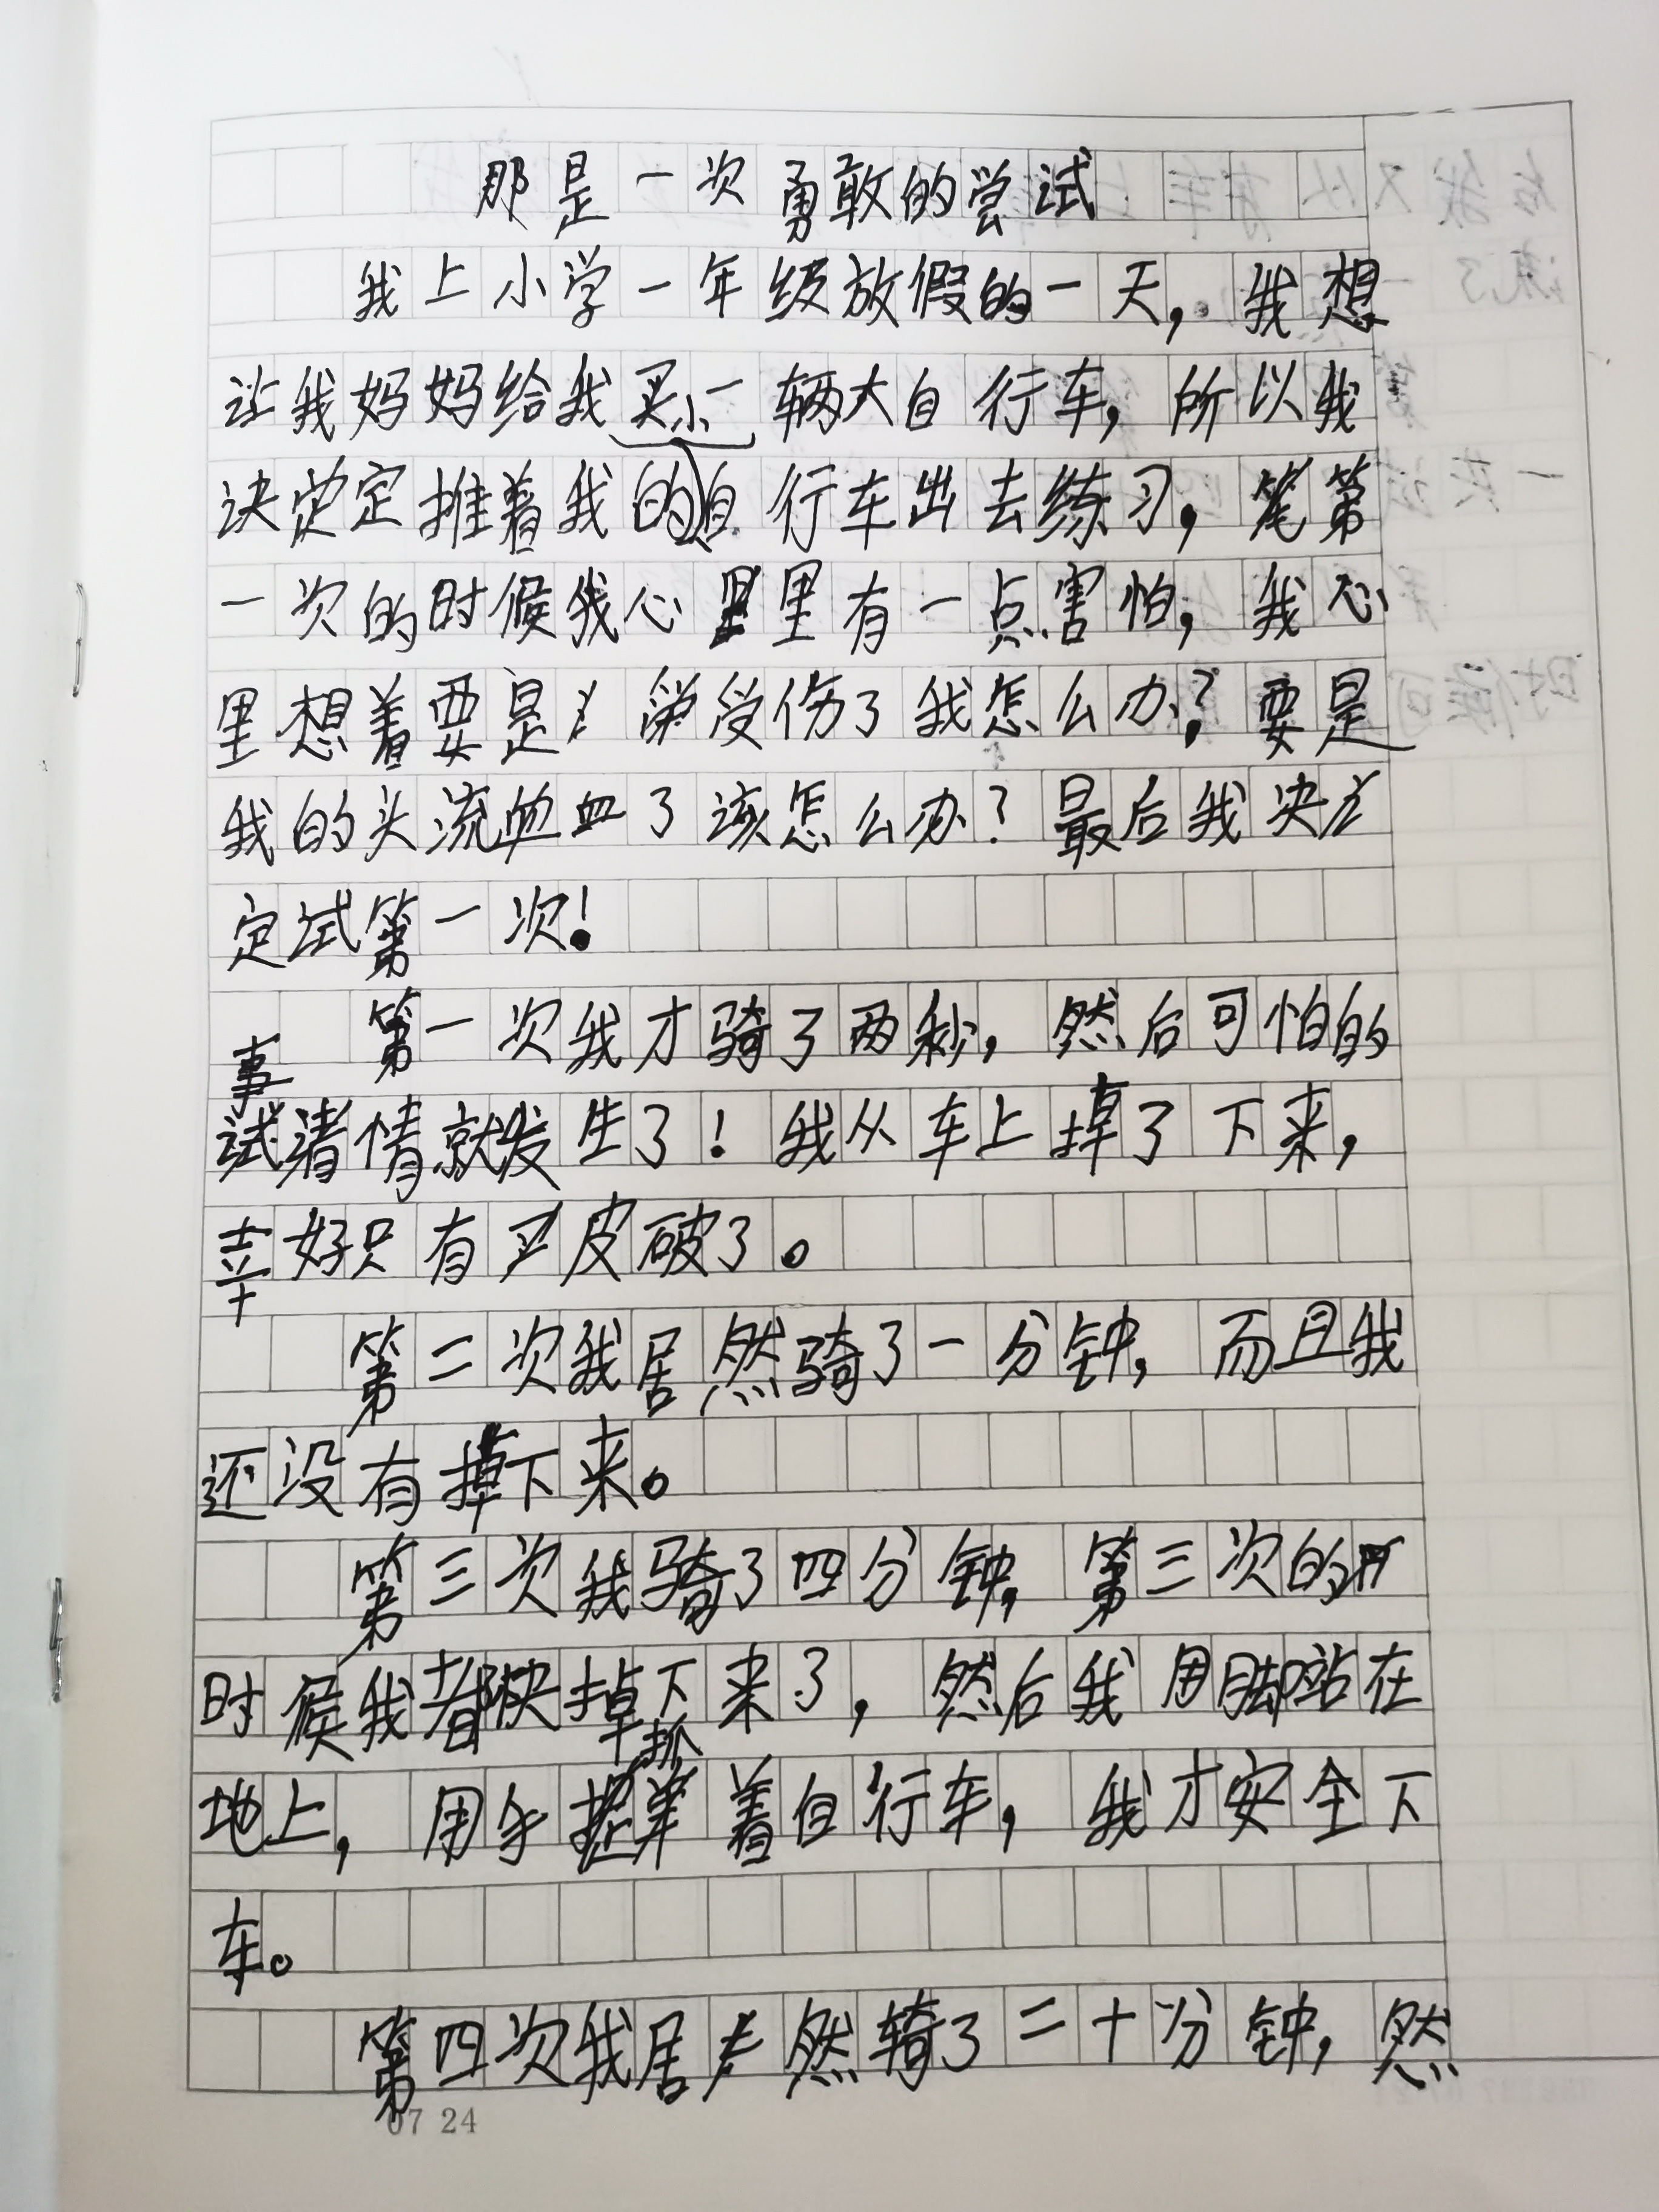 那是一次勇敢的尝试
我上小学一年级放假的一天，我想
让我妈妈给我买一辆大自行车，所以我
决定推着我的自行车出去练习，第
一次的时候我心里有一点害怕，我心
里想着要是受伤了我怎么办？要是
我的头流血了该怎么办？最后我决
定试第一次！
第一次我才骑了两秒，然后可怕的
事情就发生了！我从车上掉了下来，
幸好只有皮破了。
第二次我居然骑了一分钟，而且我
还没有掉下来。
第三次我骑了四分钟，第三次的
时候我都快掉下来了，然后我用脚站在
地上，用手抓着自行车，我才安全下
车。
第四次我居然骑了二十分钟，然
07 24